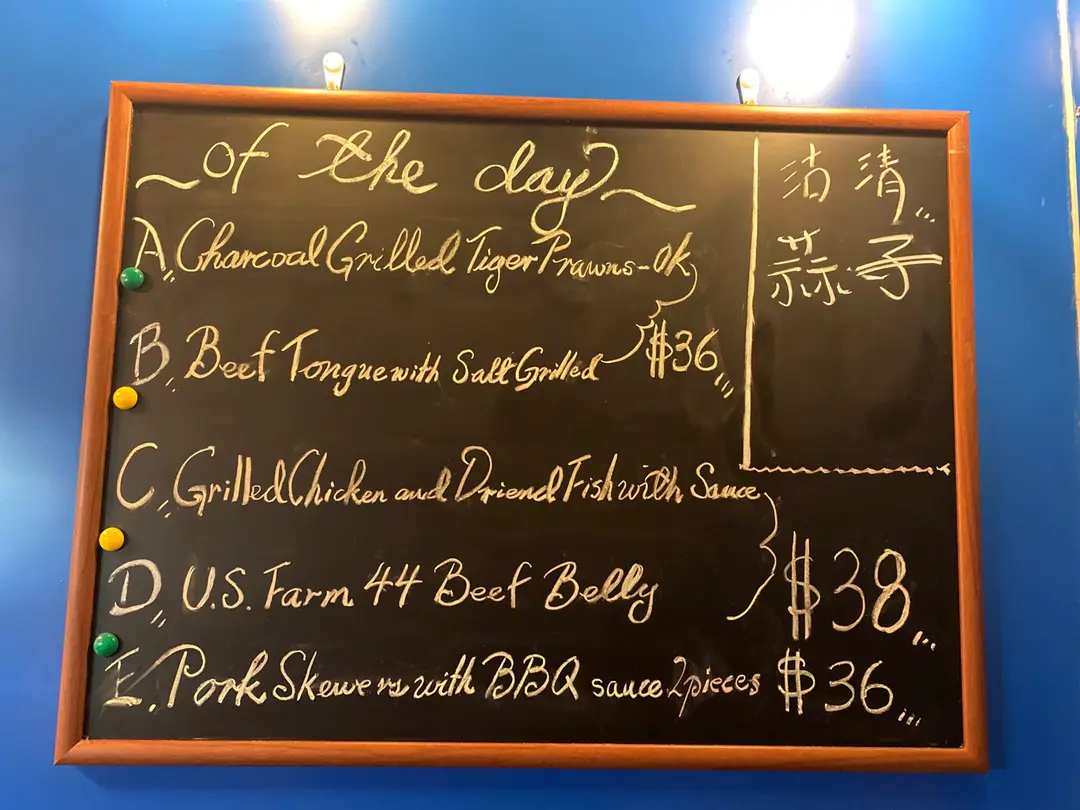 ~ of the day ~
A, Charcoal Grilled Tiger Prawns-Ok
B, Beef Tongue with Salt Grilled
$36
C, Grilled Chicken and Driend Fish with Sauce
D, U.S. Farm 44 Beef Belly
$38
E. Pork Skewers with BBQ sauce 2pieces $36
清
子
蒜